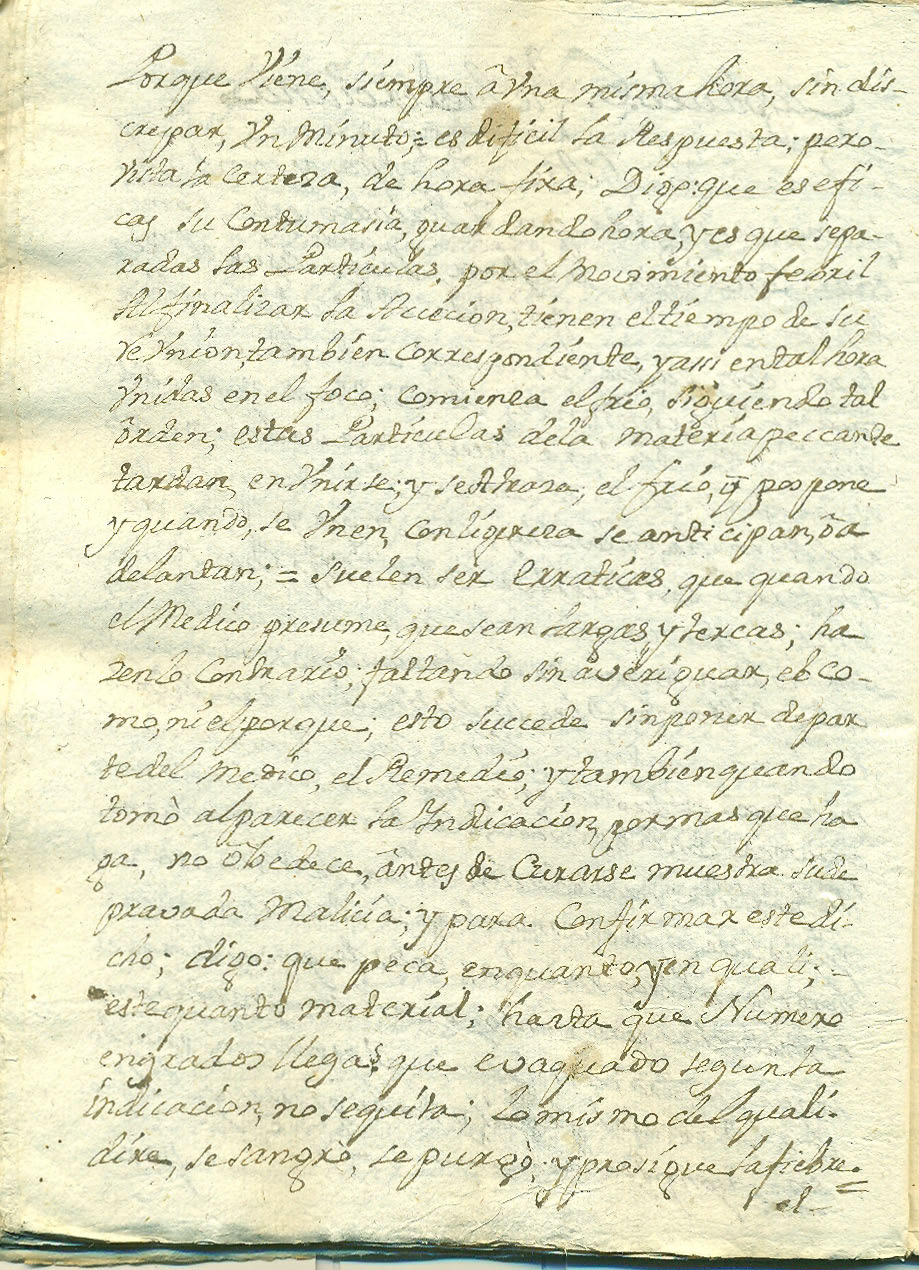 Porque Viene, siempre â Vna misma hora, sin dis-
crepar, Vn Minuto; = es dificil la Respuesta; pero
vista la Certeza, de hora fixa; Digo: que es efi-
cas su Contumasia, guardando hora, y es que sepa-
radas las Particulas. por el Movimiento febril
Al finalizar la Accecion, tienen el tiempo de su
reVnion, tambien Correspondiente, y assi en tal hora
Vnidas en el foco; Comienza el frio, siguiendo tal
ôrden; estas Particulas dela materia peccante
tardan, en Vnirse; y se Atraza, el frio, ỹ pospone
y quando, se Vnen, Con ligereza se anticipan, ô a
delantan; = Suelen ser Erraticas, que quando
el Medico presume, que sean largas y tercas; ha
zen lo Contrario; faltando sin averiguar, el co-
mo, ni el porque; esto succede sin poner de par
te del Medico, el Remedio; y tambien quando
tomò al parecer la Yndicacion, por mas que ha
ga, no Obedece, ântes de Curarse muestra su de
pravada Malicia; y para Confirmar este di-
cho; digo: que peca, en quanto, y en quali; -
este quanto material; hasta que Numero
en grados llega? que evaquado segun la
indicacion, no se quita; Lo mismo del quali-
dire, se sangrò, se purgò; y prosigue la fiebre. =
el-